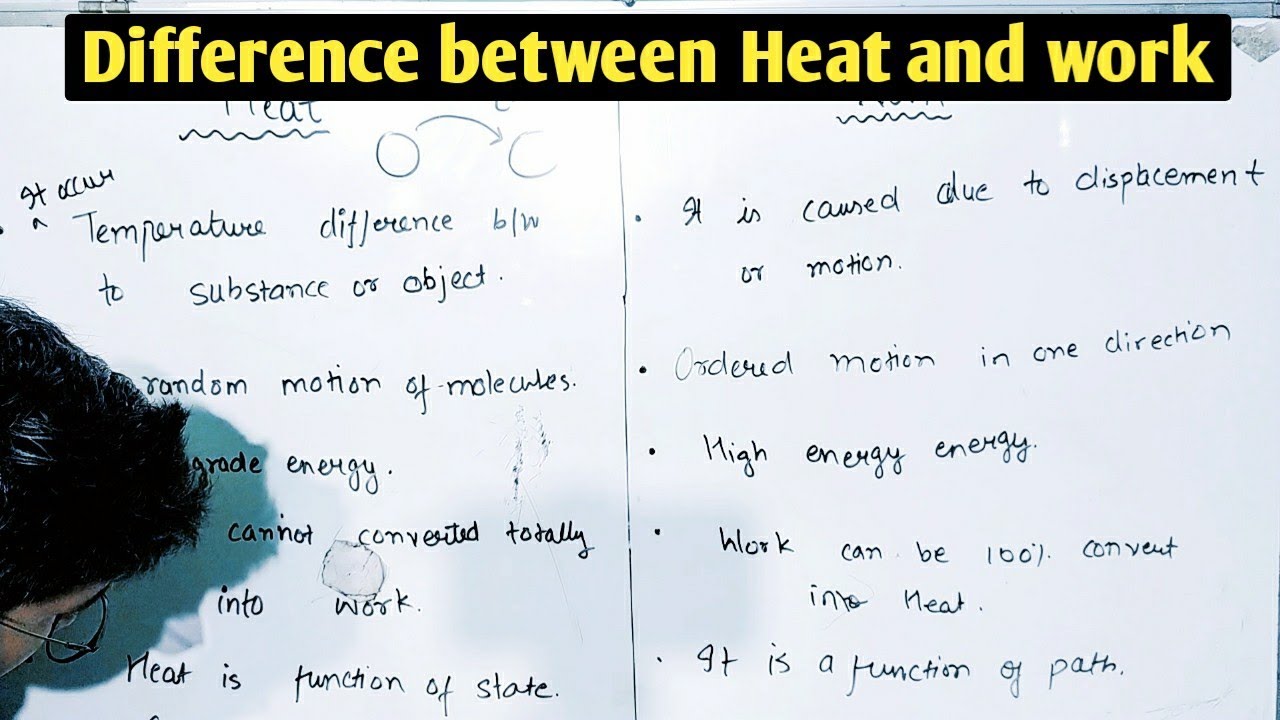 Difference between Heat and work
Heat
It occur
Temperature difference b/w
to substance or object.
random motion of molecules.
grade energy.
cannot converted totally
into work.
Heat is function of state.
Work
• It is caused due to displacement
or motion.
• Ordered motion in one direction
• High energy energy.
• Work can be 100% convert
into Heat.
• It is a function of path.